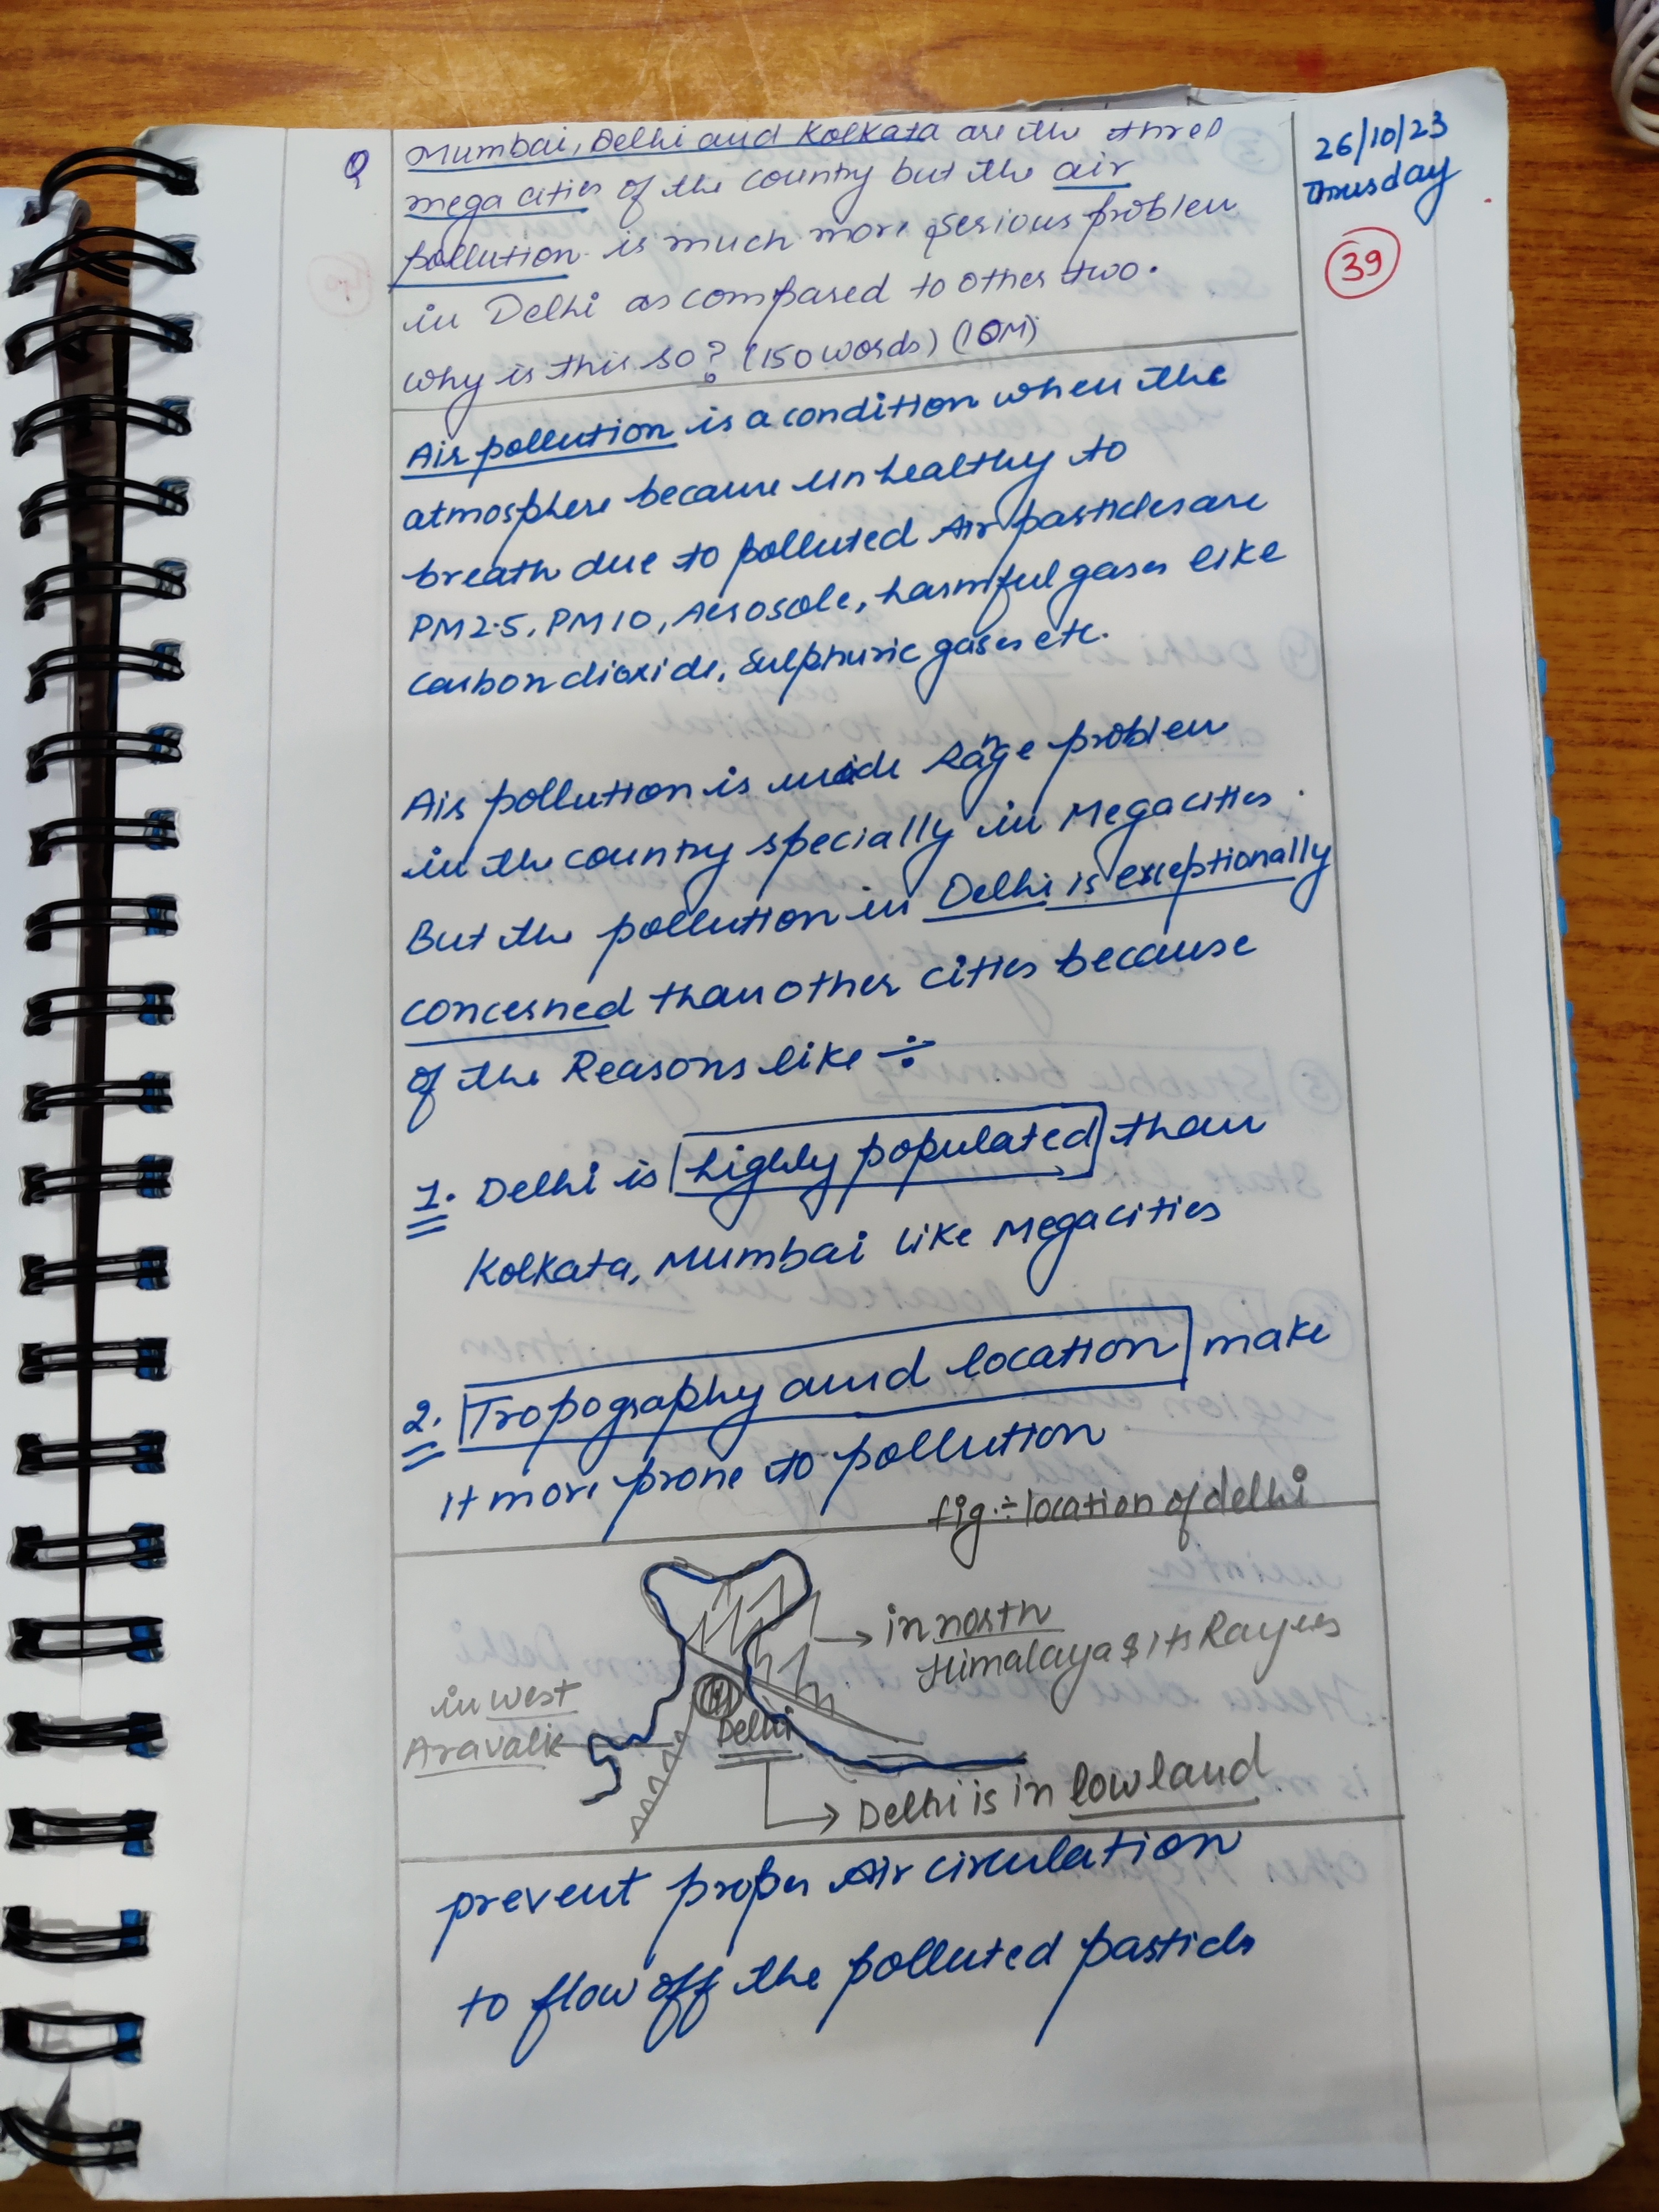 26/10/23
Thursday
39
Q Mumbai, Delhi and Kolkata are the three
mega cities of the country but the air
pollution is much more serious problem
in Delhi as compared to other two.
Why is this so? (150 words) (10M)
Air pollution is a condition when the
atmosphere because unhealthy to
breath due to polluted Air particles are
PM2.5, PM10, Aerosole, harmful gases like
carbondioxide, Sulphuric gases etc.
Air pollution is wide Range problem
in the country specially in Megacities.
But the pollution in Delhi is exceptionally
concerned than other cities because
of the Reasons like ÷
1. Delhi is highly populated than
Kolkata, Mumbai like Megacities
2. Tropography and location make
it more prone to pollution
fig:÷ location of delhi
in north
Himalaya & its Rayees
in west
Aravalie
Delhi
Delhi is in low land
prevent proper Air circulation
to flow off the polluted particls